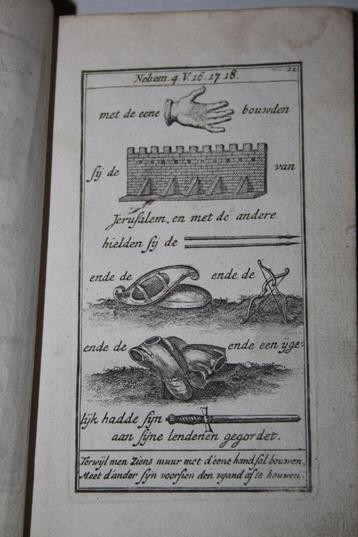 22
Nehem. 4. V. 16. 17. 18.
met de eene bouwden
sij de van
Jerusalem, en met de andere
hielden sij de
ende de ende de
ende de ende een yge-
lijk hadde sijn
aan sijne lendenen gegordet.
Terwijl men Zions muur met d'eene hand sal bouwen,
Moet d'ander sijn voorsien den vyand af te houwen.